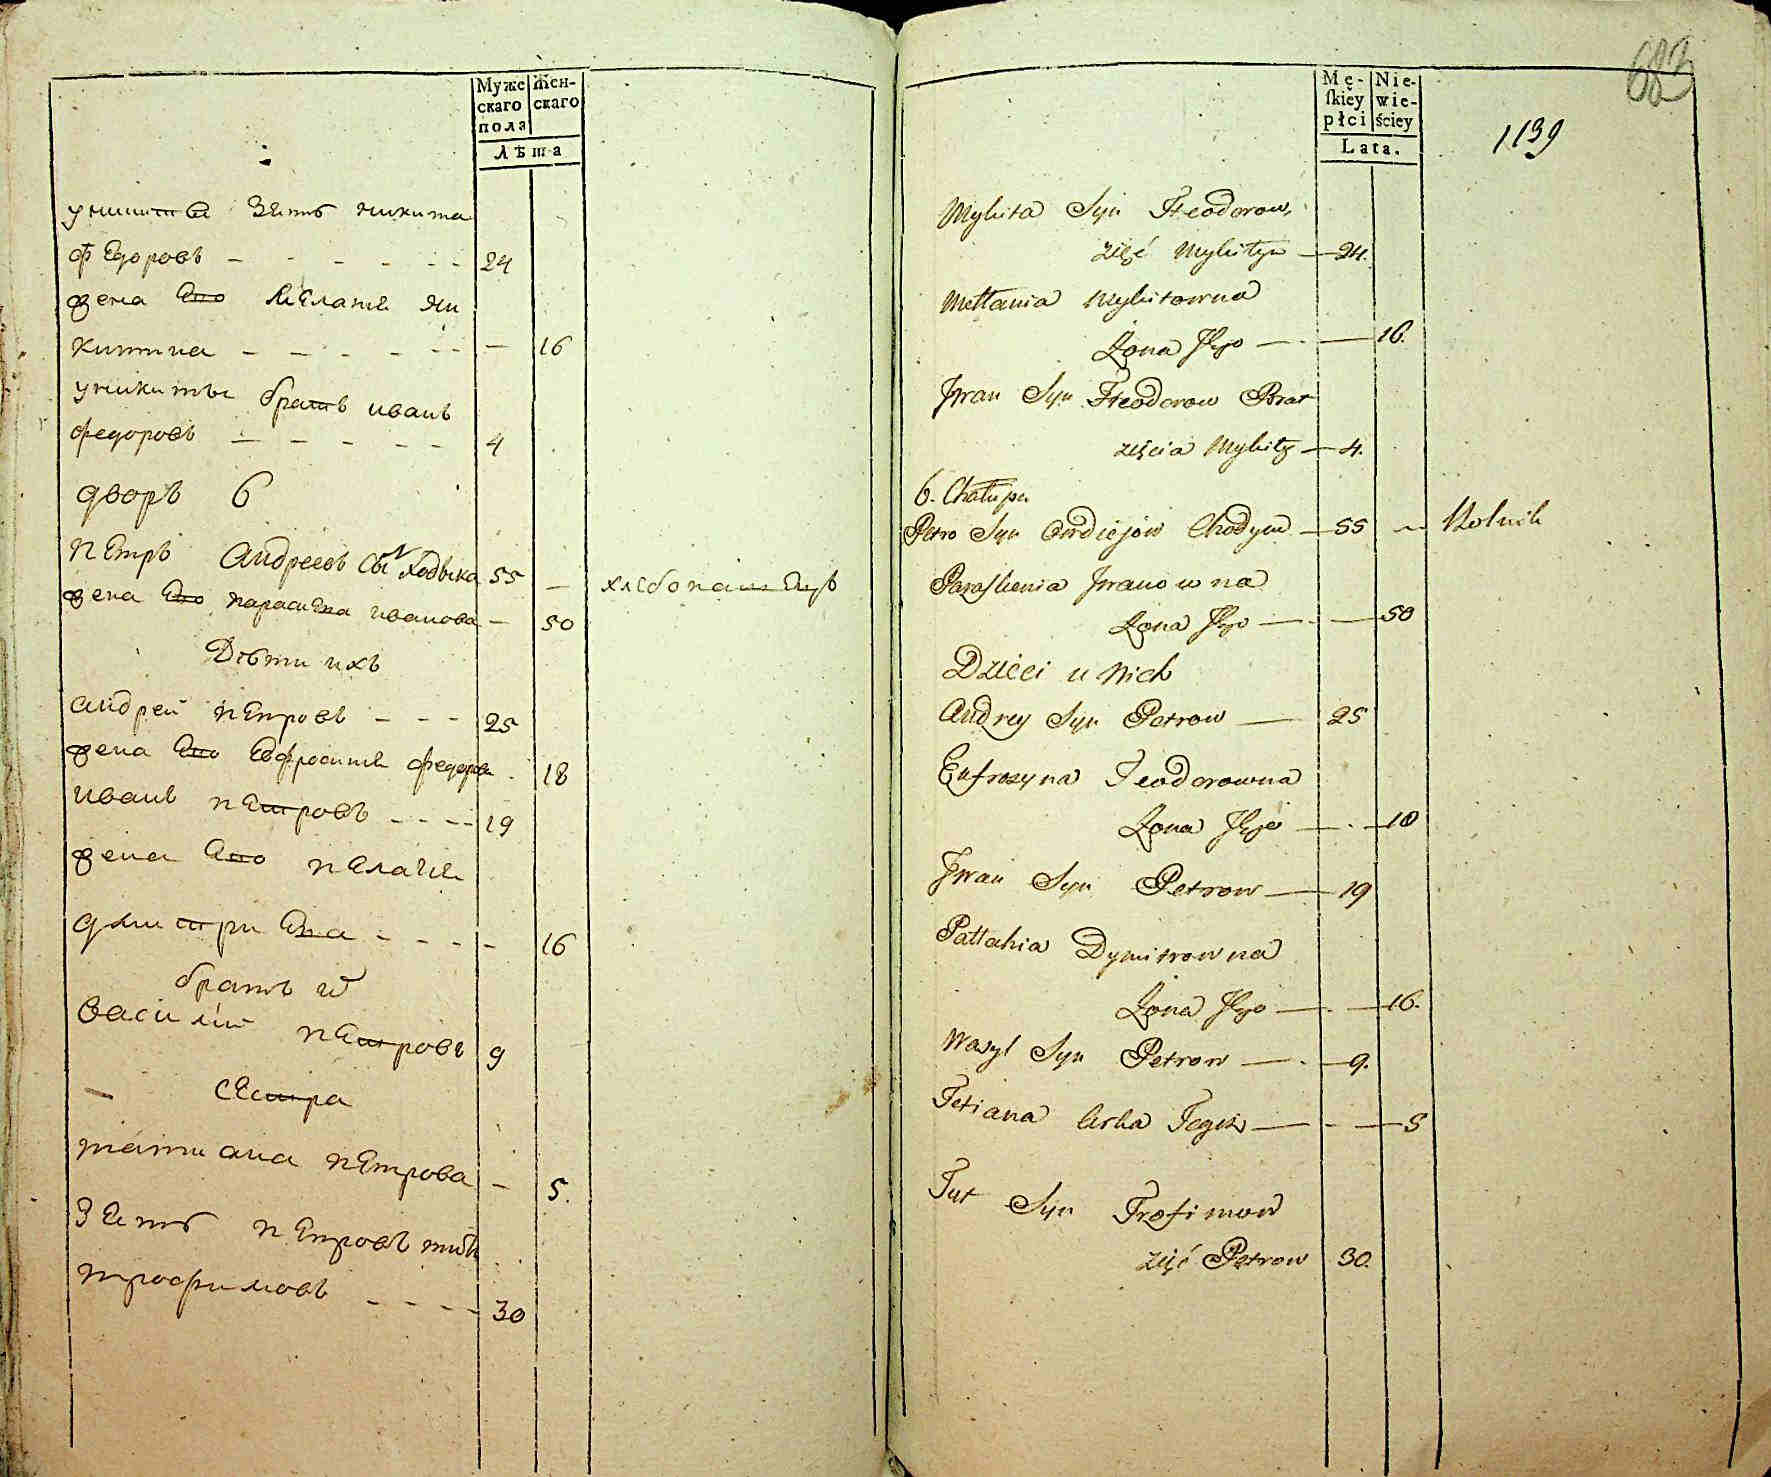 Муже
скаго
пола
Жен-
скаго
Лѣта
Зять никита
федоровъ - - - - - 24
жена Его Меланя ни
китина - - - - - - 16
уникиты братъ иванъ
федоровъ - - - - - 4
дворъ 6
петръ Андреевъ сынъ Ходыка 55 - хлебопашецъ
жена Его параскева иванова - 50
Дѣти ихъ
андреи петровъ - - - 25
жена Его Ефросиня федорова 18
иванъ петровъ - - - - 19
жена Его пелагия
дмитриева - - - - 16
братъ и
василии петровъ 9
- сестра
татиана петрова - 5.
Зять петровъ титъ
трофимовъ - - - - 30
682
1139
Mę-
skiey
płci
Nie-
wie-
ściey
Lata.
Mykita Syn Fteodorow,
zięć Mykityn — 24.
Mellania Mykitowna
Żona Jego — 16.
Jwan Syn Fteodorow Brat
zięcia Mykity — 4.
6. Chałupa
Petro Syn Andiejow Chodyka — 55 — Rolnik
Paraskewia Jwanowna
Żona Jego — 50
Dzieci u Nich
Andrey Syn Petrow — 25
Eufrozyna Teodorowna
Żona Jego — 18
Jwan Syn Petrow — 19
Pallahia Dymitrowna
Żona Jego — 16.
Wasyl Syn Petrow — 9.
Tetiana Corka Tegoż — 5
Tyt Syn Trofimow
zięć Petrow 30.